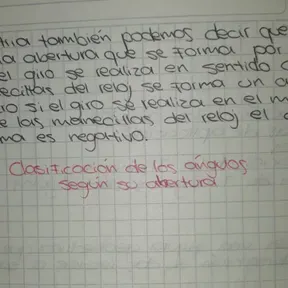 tria también podemos decir que
a abertura que se forma por
el giro se realiza en sentido
ecillas del reloj se forma un
si el giro se realiza en el m
las manecillas del reloj el
ma es negativo.
Clasificación de los ángulos
según su abertura